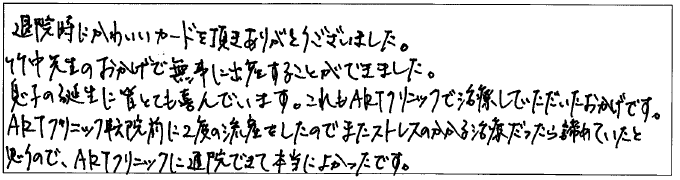 退院時にかわいいカードを頂きありがとうございました。
竹中先生のおかげで無事に出産することができました。
息子の誕生に皆とても喜んでいます。これもARTクリニックで治療していただいたおかげです。
ARTクリニック転院前に2度の流産をしたのでまたストレスのかかる治療だったら諦めていたと
思うので、ARTクリニックに通院できて本当によかったです。